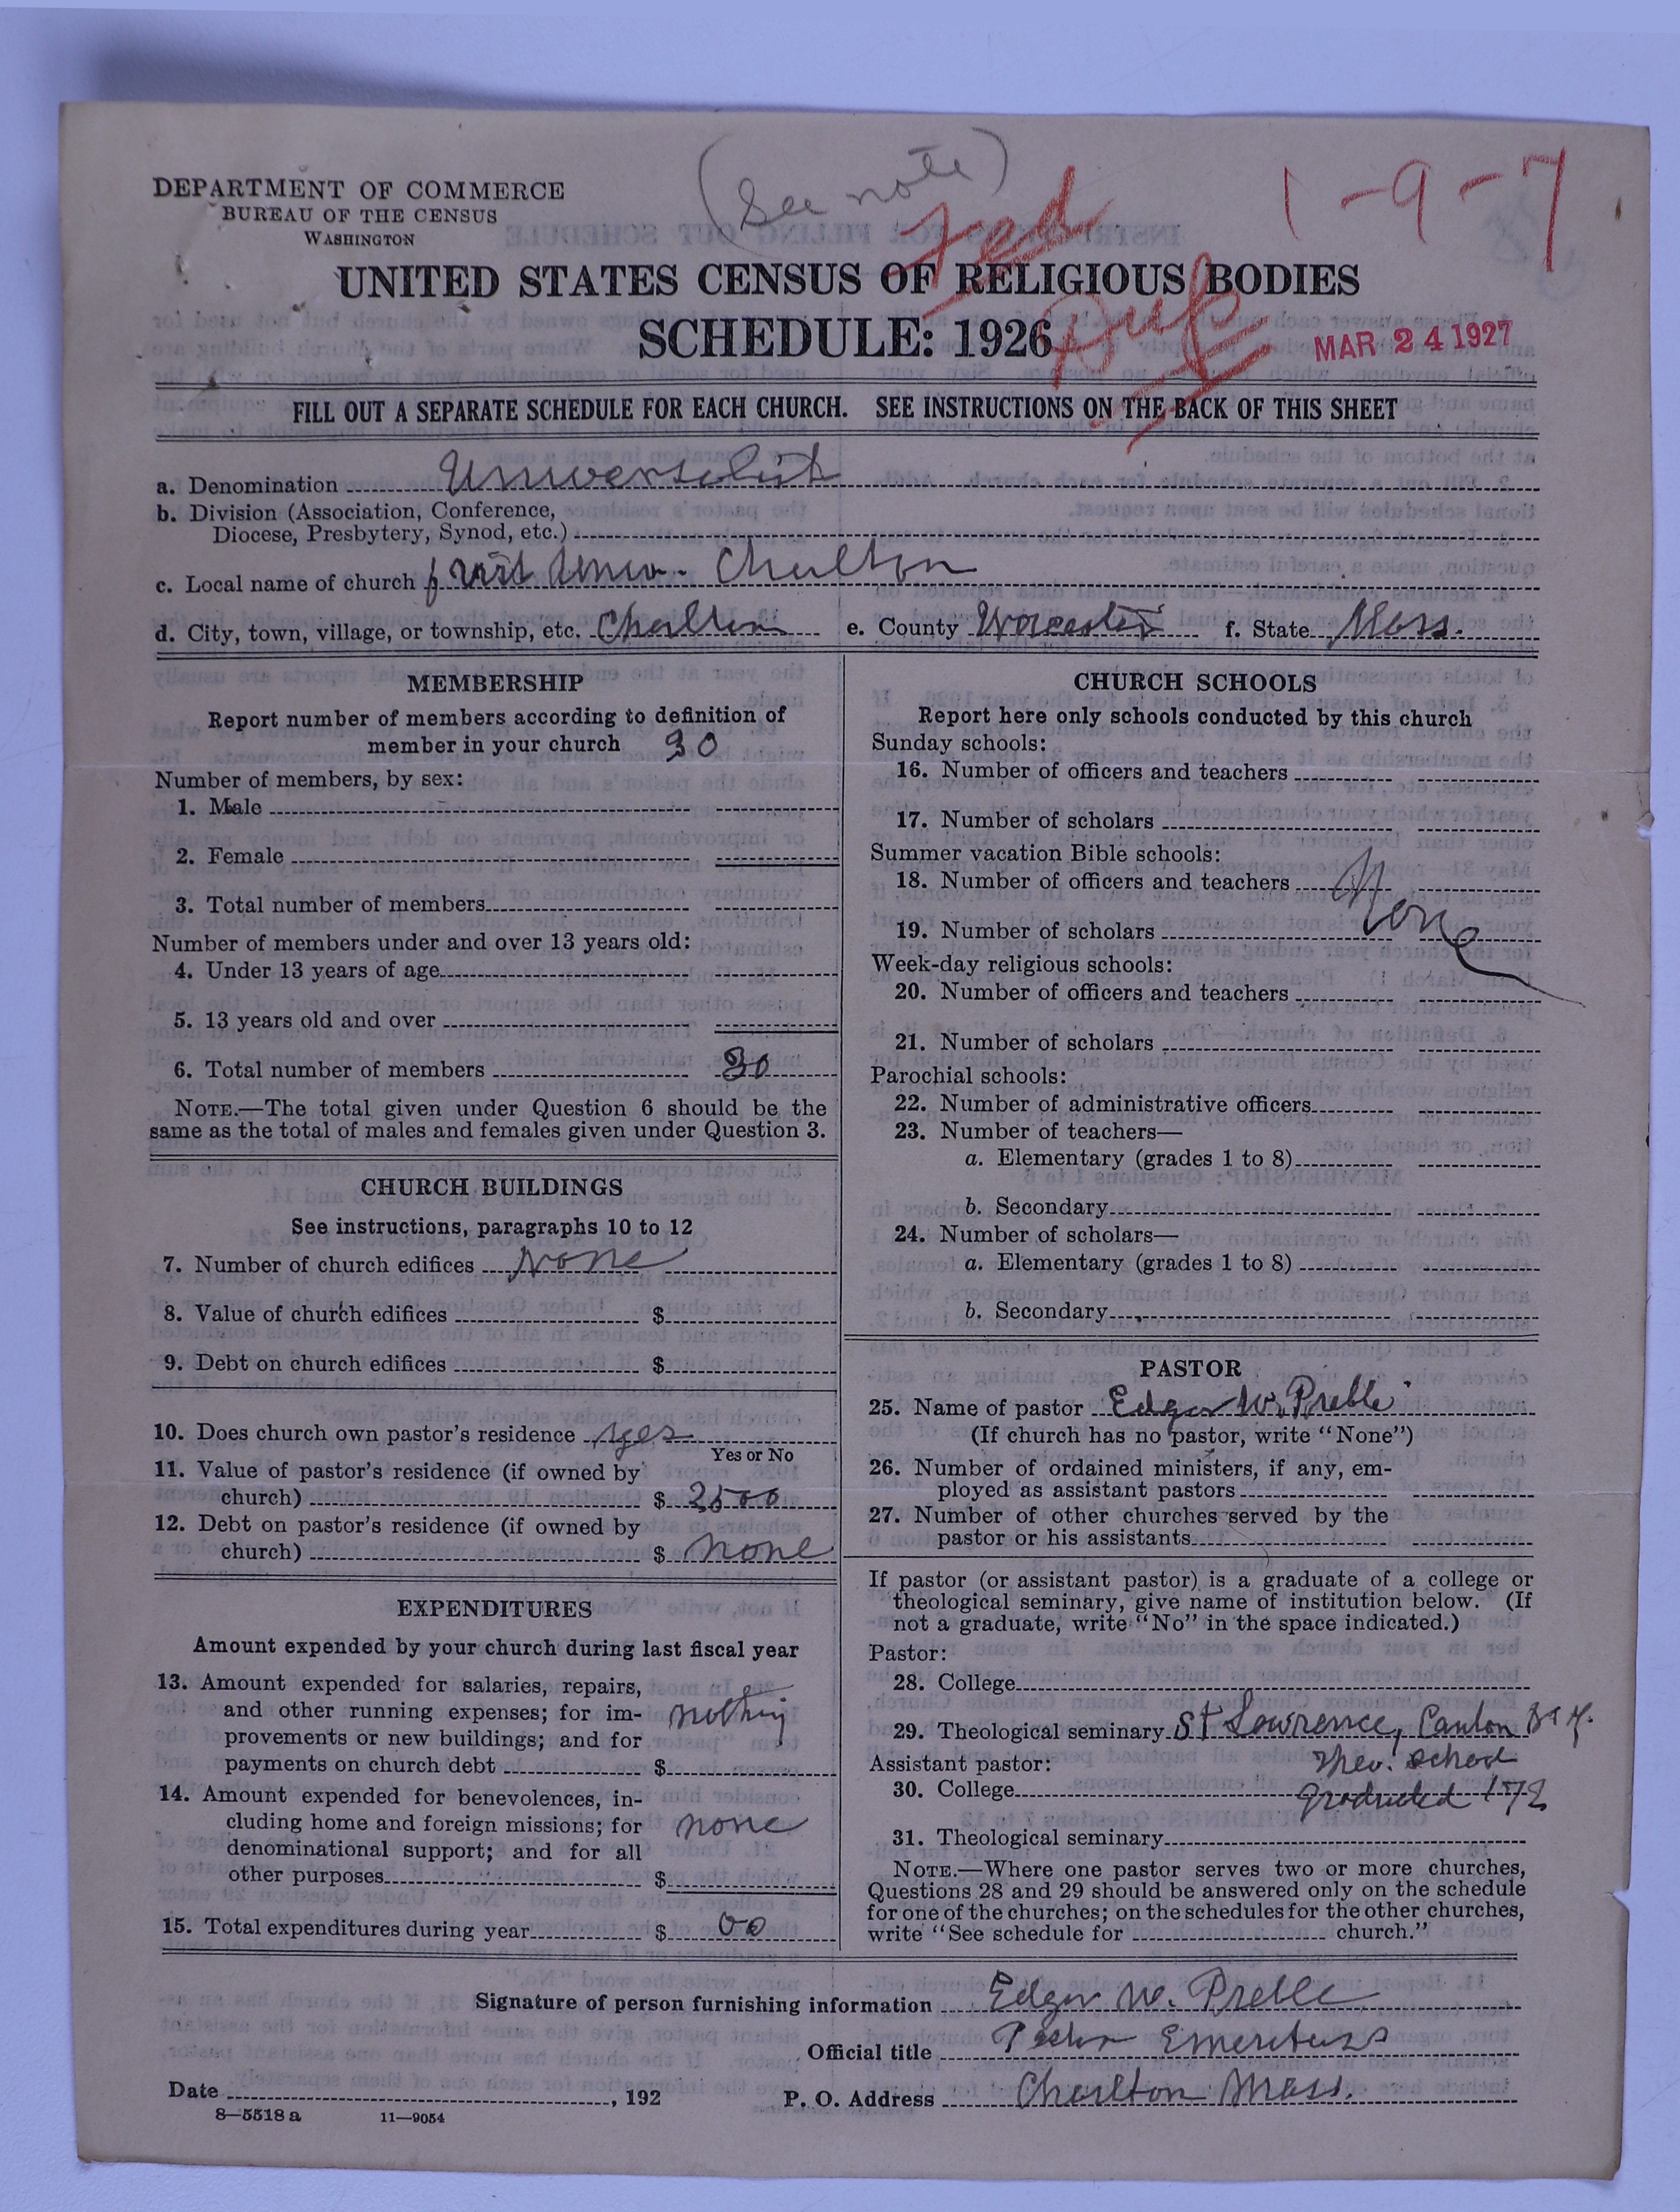 (See note)
1-9-7
Fed
Dup
DEPARTMENT OF COMMERCE
BUREAU OF THE CENSUS
WASHINGTON
UNITED STATES CENSUS OF RELIGIOUS BODIES
SCHEDULE: 1926
MAR 24 1927
FILL OUT A SEPARATE SCHEDULE FOR EACH CHURCH. SEE INSTRUCTIONS ON THE BACK OF THIS SHEET
a. Denomination Universalist
b. Division (Association, Conference,
Diocese, Presbytery, Synod, etc.)
c. Local name of church first Univ. Charlton
d. City, town, village, or township, etc. Charlton e. County Worcester f. State Mass.
MEMBERSHIP
Report number of members according to definition of
member in your church 30
Number of members, by sex:
1. Male
2. Female
3. Total number of members
Number of members under and over 13 years old:
4. Under 13 years of age
5. 13 years old and over
6. Total number of members 30
NOTE.—The total given under Question 6 should be the
same as the total of males and females given under Question 3.
CHURCH BUILDINGS
See instructions, paragraphs 10 to 12
7. Number of church edifices none
8. Value of church edifices $
9. Debt on church edifices $
10. Does church own pastor's residence yes
Yes or No
11. Value of pastor's residence (if owned by
church) $ 2500
12. Debt on pastor's residence (if owned by
church) $ none
EXPENDITURES
Amount expended by your church during last fiscal year
13. Amount expended for salaries, repairs,
and other running expenses; for im-
provements or new buildings; and for
payments on church debt $ nothing
14. Amount expended for benevolences, in-
cluding home and foreign missions; for
denominational support; and for all
other purposes $ none
15. Total expenditures during year $ 00
CHURCH SCHOOLS
Report here only schools conducted by this church
Sunday schools:
16. Number of officers and teachers
17. Number of scholars
Summer vacation Bible schools:
18. Number of officers and teachers None
19. Number of scholars
Week-day religious schools:
20. Number of officers and teachers
21. Number of scholars
Parochial schools:
22. Number of administrative officers
23. Number of teachers—
a. Elementary (grades 1 to 8)
b. Secondary
24. Number of scholars—
a. Elementary (grades 1 to 8)
b. Secondary
PASTOR
25. Name of pastor Edgar W. Preble
(If church has no pastor, write "None")
26. Number of ordained ministers, if any, em-
ployed as assistant pastors
27. Number of other churches served by the
pastor or his assistants
If pastor (or assistant pastor) is a graduate of a college or
theological seminary, give name of institution below. (If
not a graduate, write "No" in the space indicated.)
Pastor:
28. College
29. Theological seminary St Lawrence, Canton
Theo. School
Assistant pastor:
30. College Graduated
31. Theological seminary
NOTE.—Where one pastor serves two or more churches,
Questions 28 and 29 should be answered only on the schedule
for one of the churches; on the schedules for the other churches,
write "See schedule for church."
Signature of person furnishing information Edgar W. Preble
Official title Pastor Emeritus
Date , 192 P. O. Address Charlton Mass.
8—5518 a 11—9054